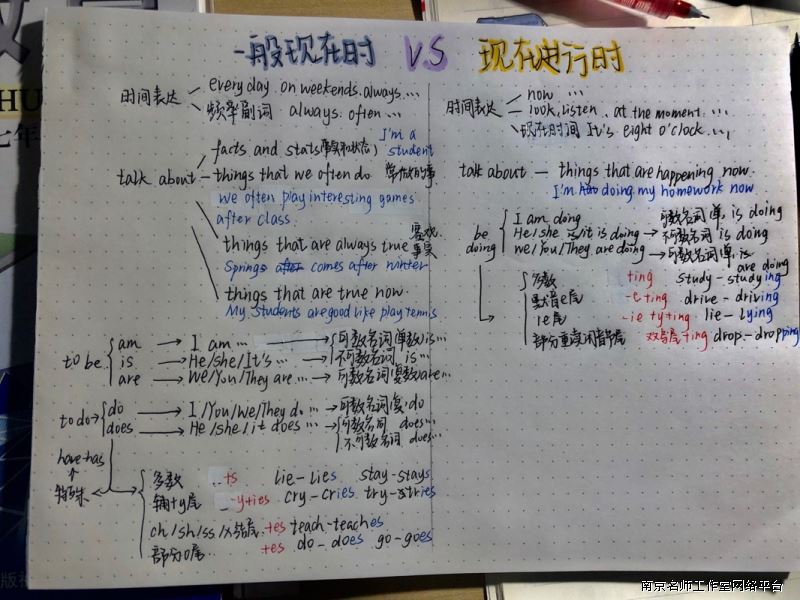 一般现在时 VS 现在进行时
时间表达
every day. on weekends. always. ...
频率副词. always. often. ...
talk about
facts and stats (事实和状态) I'm a student
things that we often do
we often play interesting games
after class
things that are always true 客观事实
Springs after comes after winter
things that are true now.
My students are good like play tennis
to be
am → I am ... → 可数名词单数 is...
is → He/she/It's ... → 不可数名词 is...
are → We/You/They are ... → 可数名词复数 are...
to do
do → I/You/We/They do ... → 可数名词复 do
does → He/she/it does ... → 可数名词 does...
不可数名词 does...
have-has
特殊
多数 +s lie-lies stay-stays
辅+y尾 -y+ies cry-cries try-tries
ch/sh/ss/x结尾 +es teach-teaches
部分o尾 +es do-does go-goes
时间表达
now ...
look, listen. at the moment. ...
现在时间 It's eight o'clock. ...
talk about — things that are happening now.
I'm doing my homework now
be doing
I am doing 可数名词单. is doing
He/she is/it is doing → 不可数名词 is doing
we/You/They are doing → 可数名词 are doing
多数 +ing study-studying
默音e尾 -e+ing drive-driving
ie尾 -ie+y+ing lie-lying
部分重读闭音节尾 双写尾+ing drop-dropping
HU
七年
版社
南京名师工作室网络平台